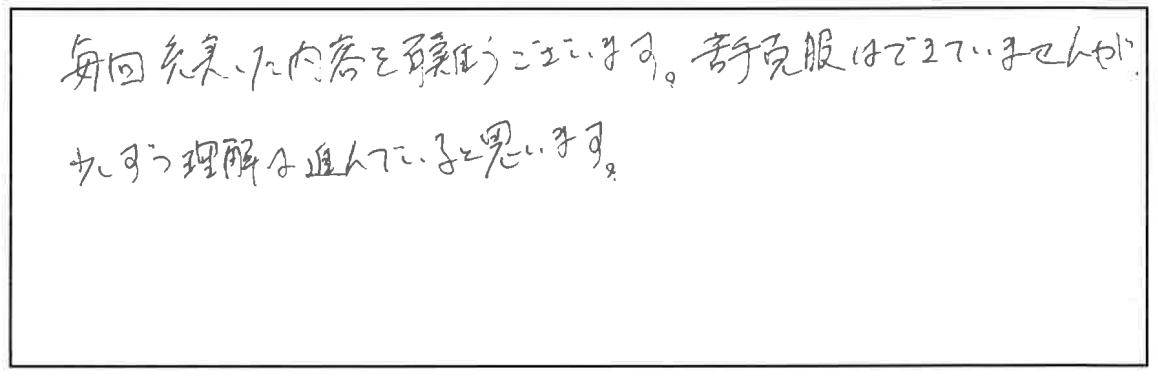 毎回充実した内容を有難うございます。苦手克服はできていませんが、
少しずつ理解は進んでいると思います。